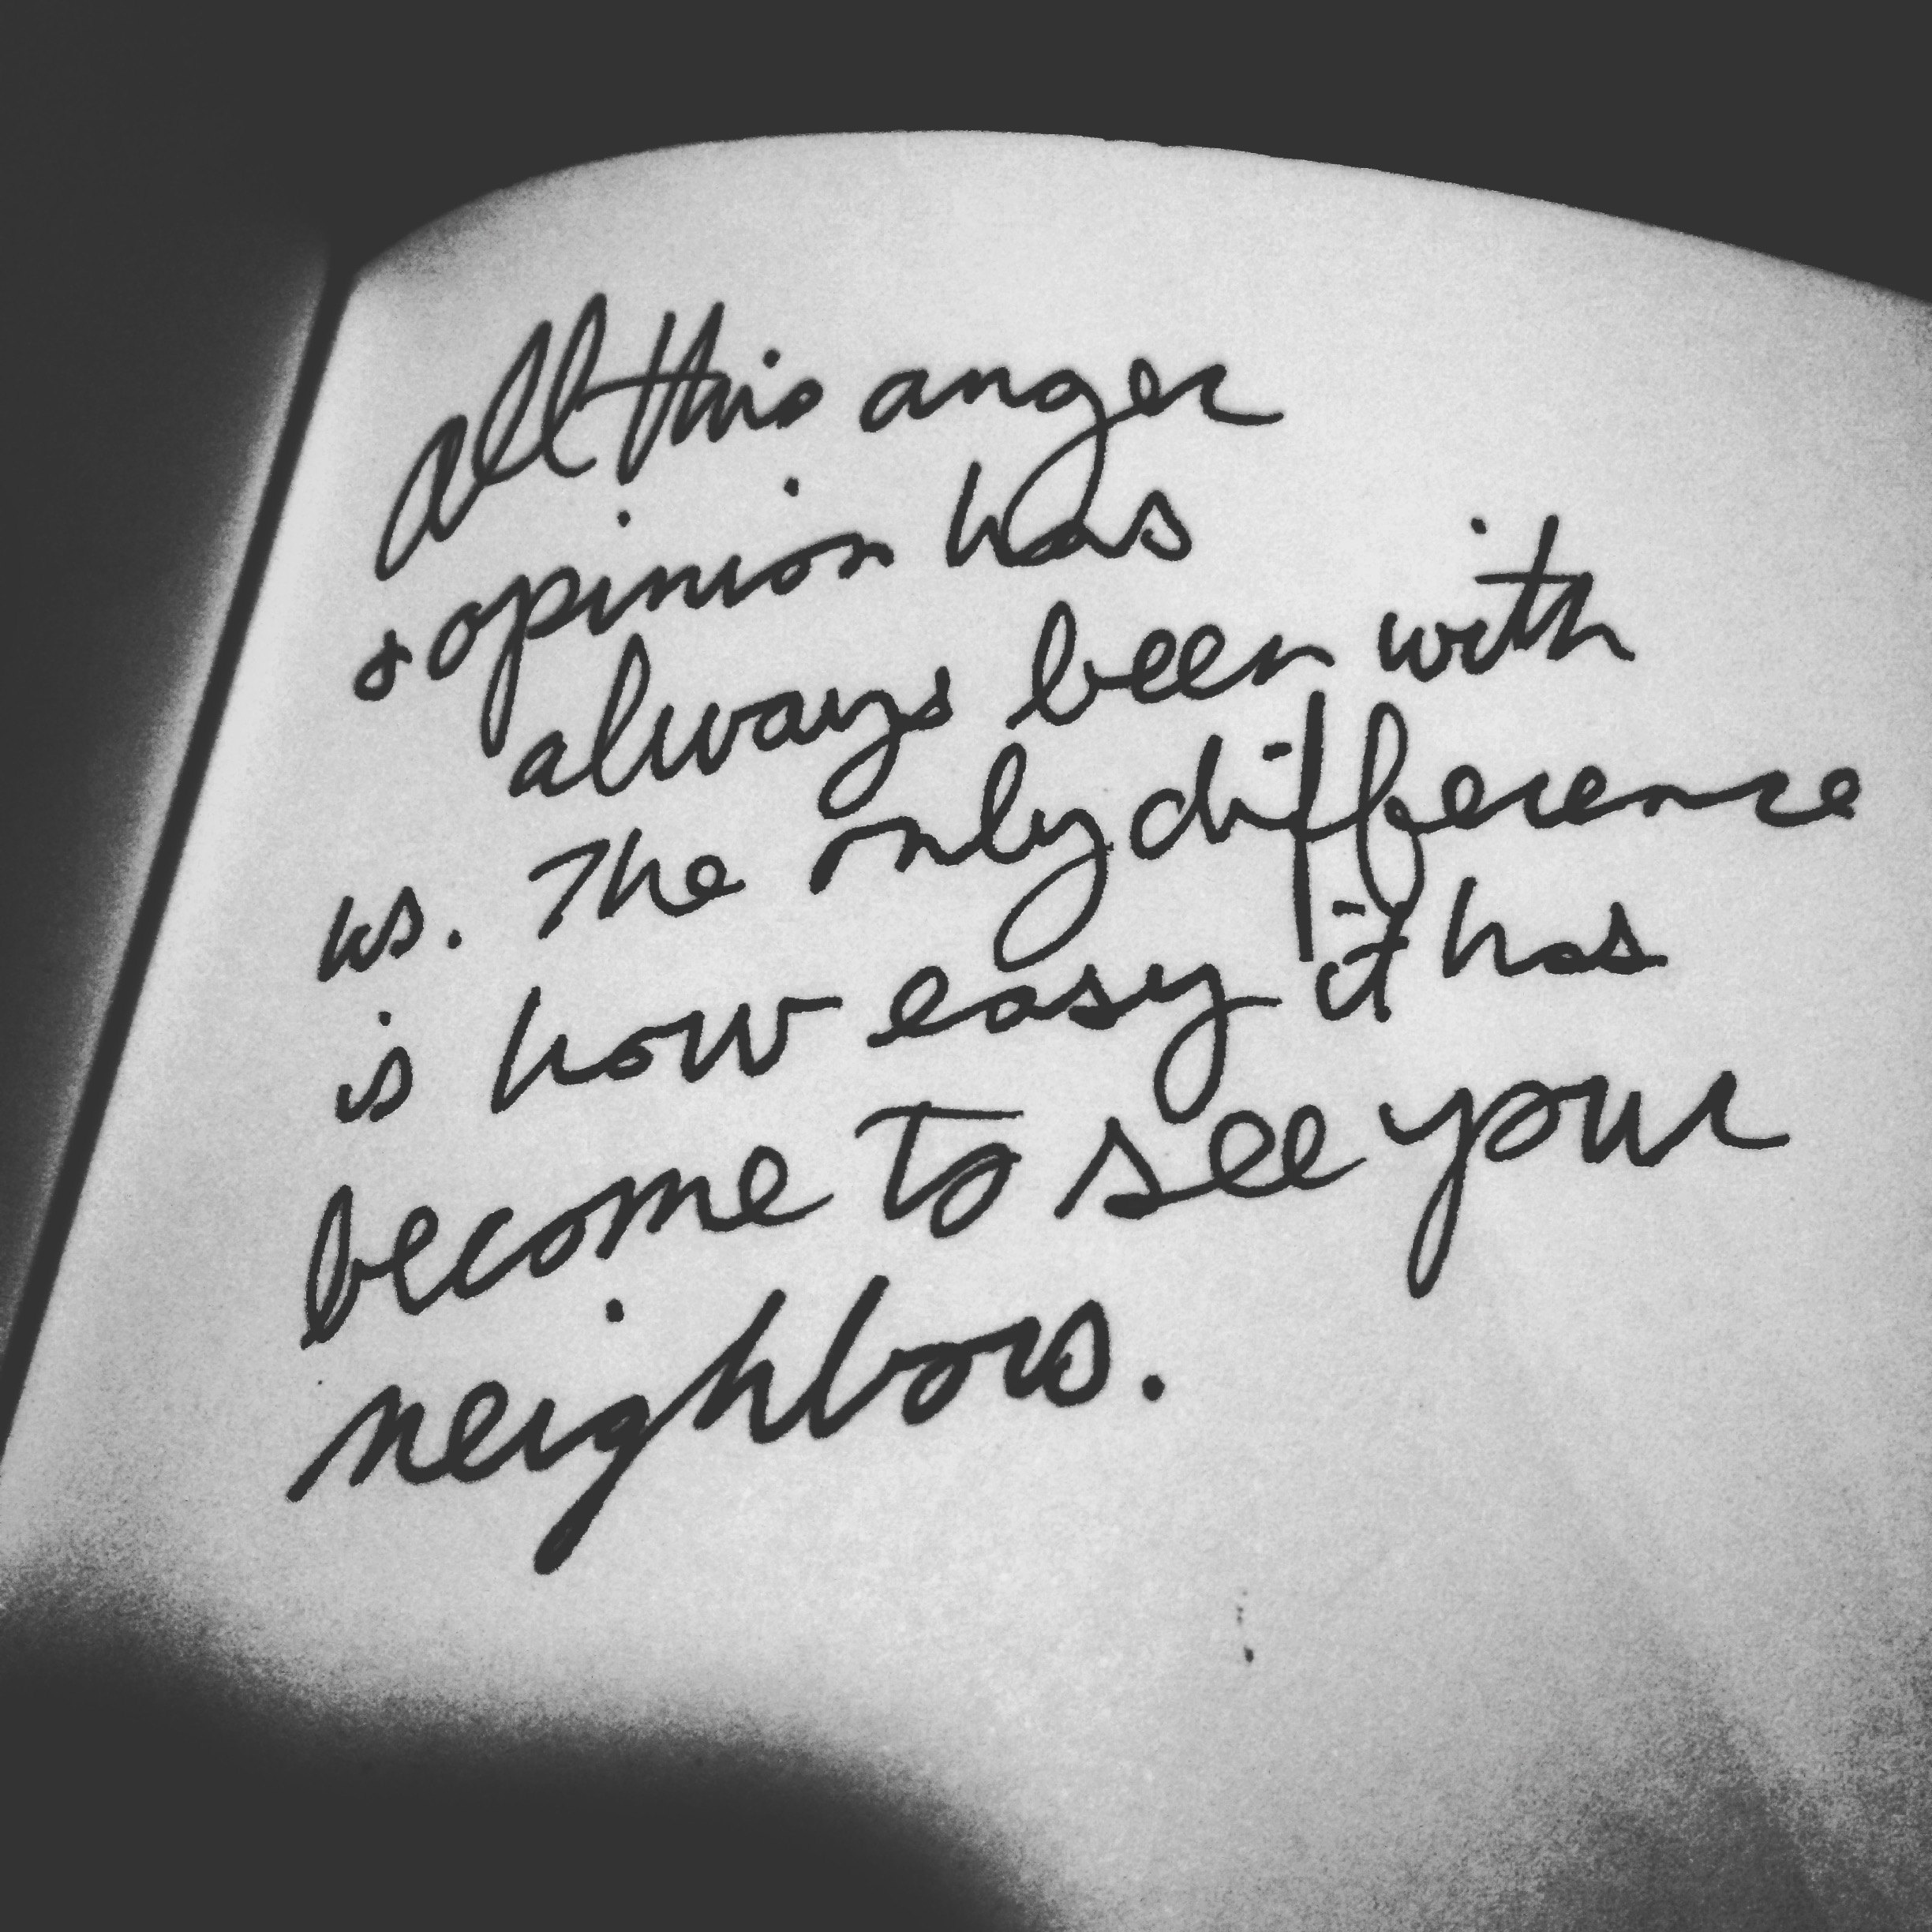 All this anger
& opinion has
always been with
us. The only difference
is how easy it has
become to see your
neighbors.